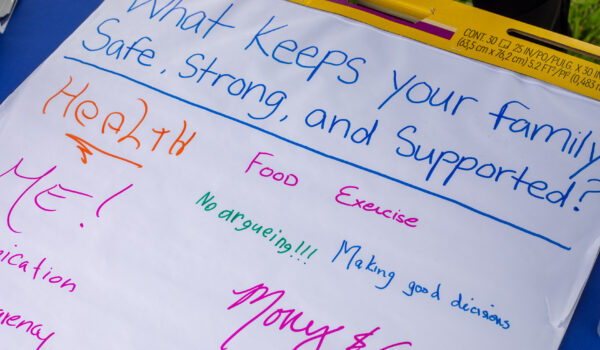 CONT. 30 25 IN/PO/PULG. X 30 IN
(63,5 cm x 76,2 cm) 5.2 FT²/PI² (0,483 m
What Keeps your family
Safe, Strong, and Supported?
HEALTH
Food Exercise
ME!
No argueing!!! Making good decisions
ication
Money &
arency